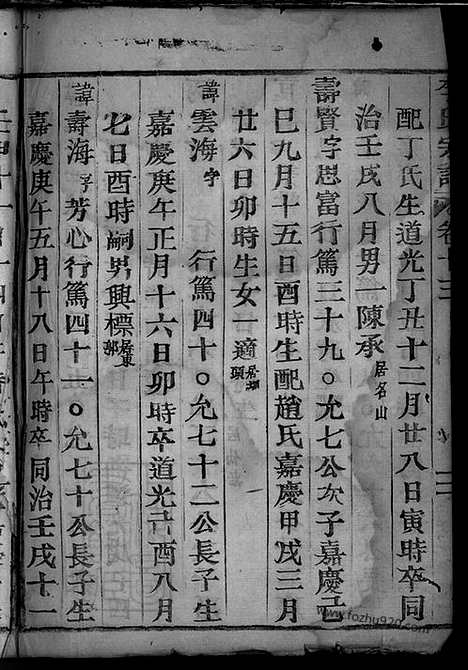 氏宗譜 卷十三
配丁氏生道光丁丑十二月廿八日寅時卒同
治壬戌八月男一陳承居名山
壽賢字思富行篤三十九〇允七公次子嘉慶
巳九月十五日酉時生配趙氏嘉慶甲戌三月
廿六日卯時生女一適
諱雲海字 行篤四十〇允七十二公長子生
嘉慶庚午正月十六日卯時卒道光酉八月
七日酉時嗣男興標居東郭
諱壽海字芳心行篤四十一〇允七十公長子生
嘉慶庚午五月十八日午時卒同治壬戌十一
www.fozhu920.com